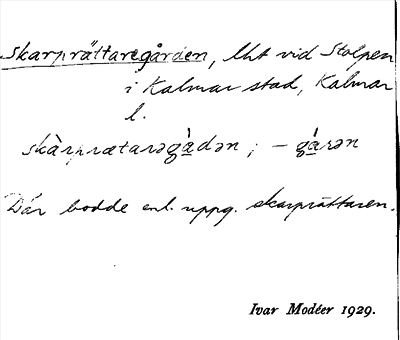 Skarprättaregården, lht vid Stolpen
i Kalmar stad, Kalmar
l.
skàrprætarəgá̱dən; – gá̱rən
Där bodde enl. uppg. skarprättaren.
Ivar Modéer 1929.